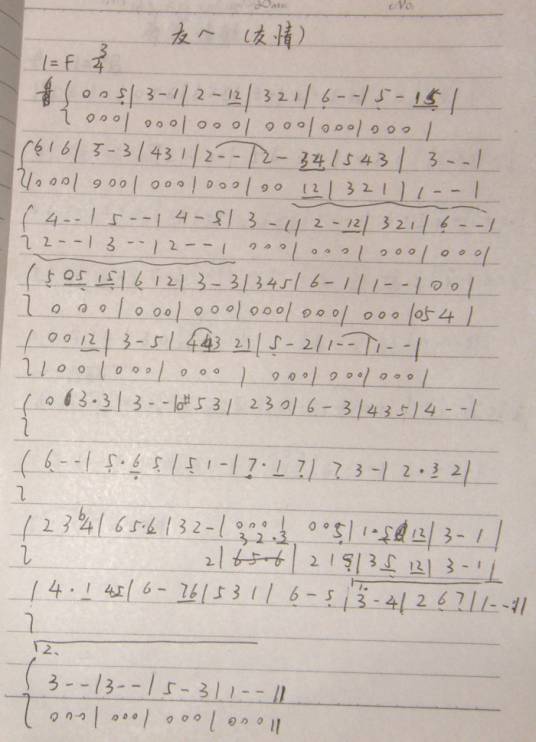 Date No.
友へ (友情)
1=F 3/4
0 0 5 | 3 - 1 | 2 - 12 | 3 2 1 | 6 - - | 5 - 15 |
0 0 0 | 0 0 0 | 0 0 0 | 0 0 0 | 0 0 0 | 0 0 0 |
6 1 6 | 5 - 3 | 4 3 1 | 2 - - | 2 - 34 | 5 4 3 | 3 - - |
0 0 0 | 0 0 0 | 0 0 0 | 0 0 0 | 0 0 12 | 3 2 1 | 1 - - |
4 - - | 5 - - | 4 - 5 | 3 - 1 | 2 - 12 | 3 2 1 | 6 - - |
2 - - | 3 - - | 2 - - | 0 0 0 | 0 0 0 | 0 0 0 | 0 0 0
5 05 15 | 6 12 | 3 - 3 | 3 4 5 | 6 - 1 | 1 - - | 0 0 |
0 0 0 | 0 0 0 | 0 0 0 | 0 0 0 | 0 0 0 | 0 0 0 | 0 5 4 |
0 0 12 | 3 - 5 | 4 43 21 | 5 - 2 | 1 - - | 1 - - |
1 0 0 | 0 0 0 | 0 0 0 | 0 0 0 | 0 0 0 | 0 0 0 |
3·3 | 3 - - | 0 #5 3 | 2 3 0 | 6 - 3 | 4 3 5 | 4 - - |
6 - - | 5·6 5 | 5 1 - | 7·1 7 | 7 3 - | 2·3 2 |
2 3 b4 | 6 5·6 | 3 2 - | 0 0 0 | 0 0 5 | 1·5 12 | 3 - 1 |
3 2·3
2 | 6 5·6 | 2 1 5 | 3 5 12 | 3 - 1 |
4·1 45 | 6 - 76 | 5 3 1 | 6 - 5 | 3 - 4 | 2 6 7 | 1 - - :||
2.
3 - - | 3 - - | 5 - 3 | 1 - - ||
0 0 0 | 0 0 0 | 0 0 0 | 0 0 0 ||